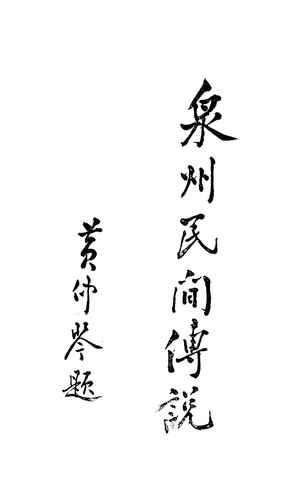 泉州民間傳說
黃仲琴題